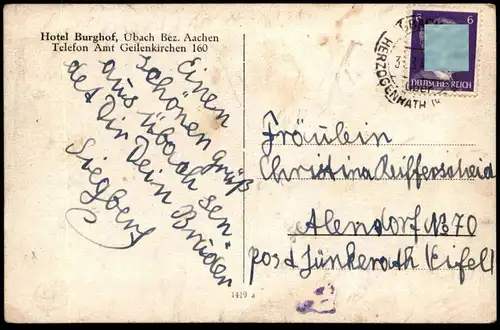 Hotel Burghof, Übach Bez. Aachen
Telefon Amt Geilenkirchen 160
Einen
schönen gruß
aus übach sen-
det Dir Dein Bruder
Siegbert
6
DEUTSCHES REICH
HERZOGENRATH
Fräulein
Christina Reifferscheid
Alendorf No 70
post Jünkerath (Eifel)
1419 a